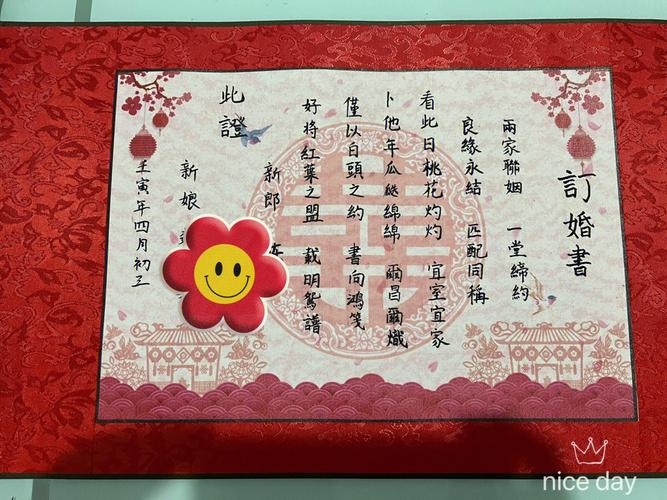 訂婚書
兩家聯姻 一堂締約
良緣永結 匹配同稱
看此日桃花灼灼 宜室宜家
卜他年瓜瓞綿綿 爾昌爾熾
僅以白頭之約 書向鴻箋
好將紅葉之盟 載明鴛譜
此證
新郎
新娘
壬寅年四月初三
nice day